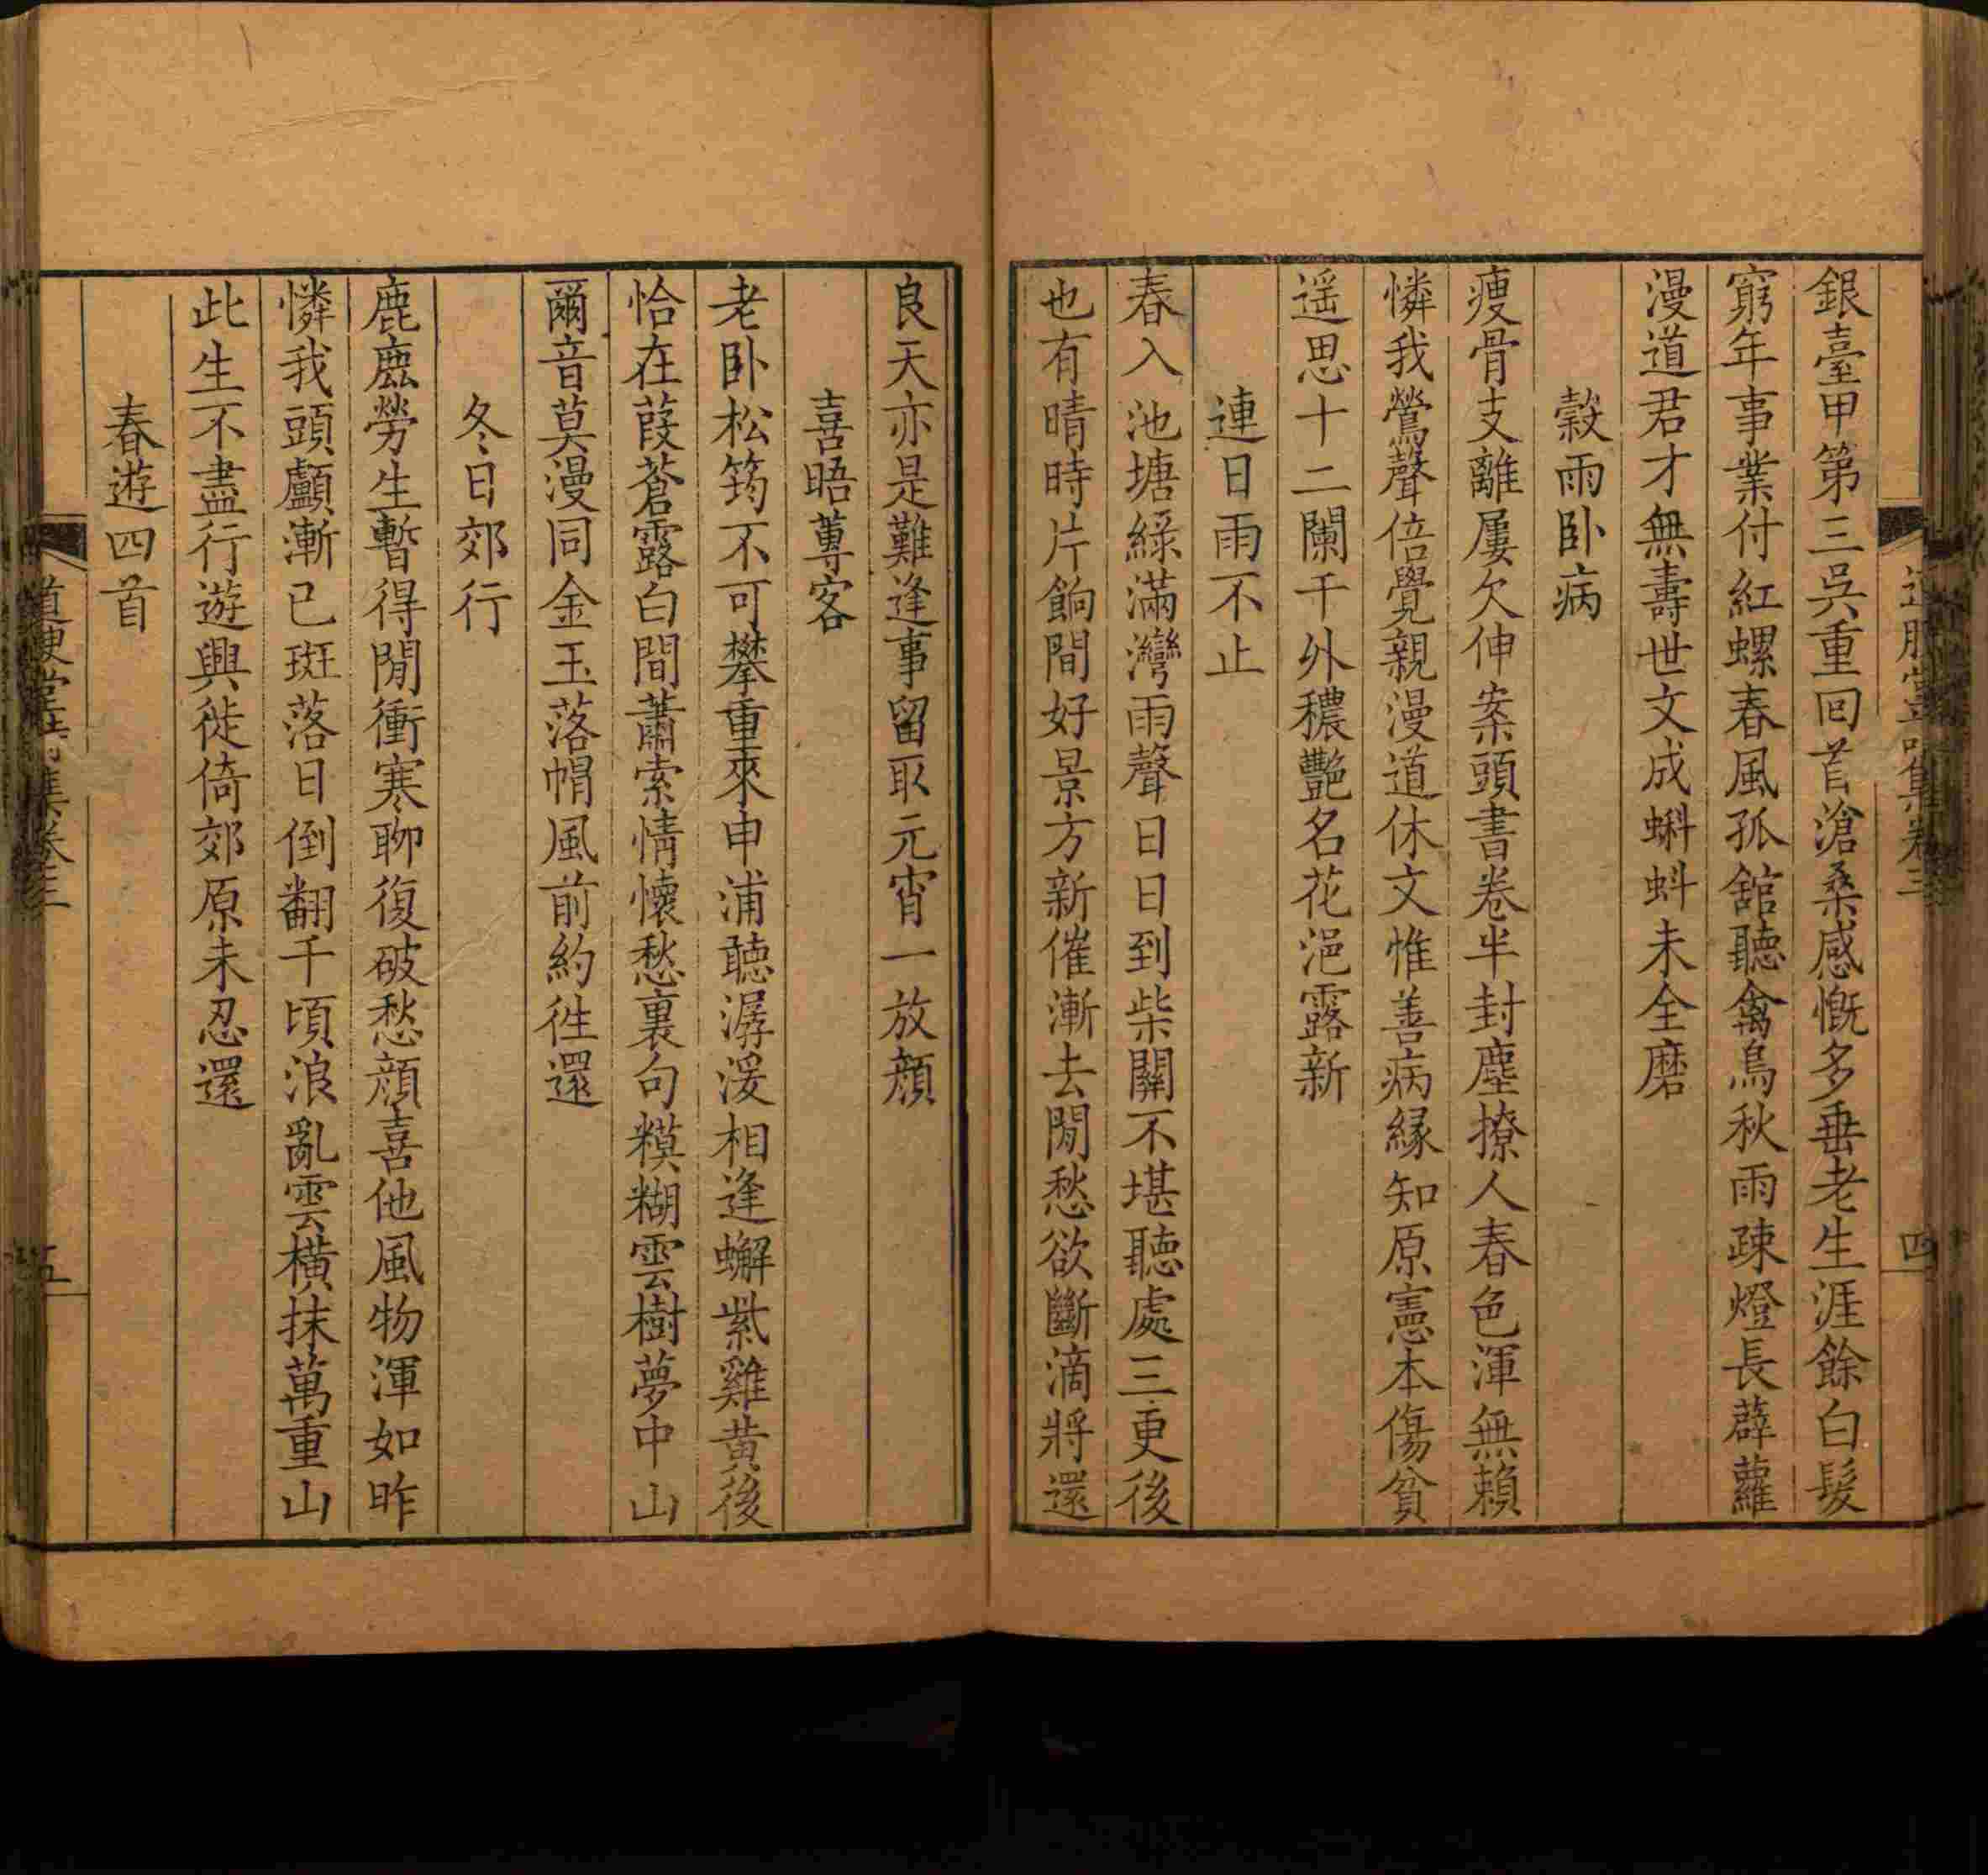 銀臺甲第三吳重回首滄桑感慨多垂老生涯餘白髮
窮年事業付紅螺春風孤舘聽禽鳥秋雨疎燈長薜蘿
漫道君才無壽世文成蝌蚪未全磨
穀雨卧病
瘦骨支離屢欠伸案頭書卷半封塵撩人春色渾無賴
憐我鶯聲倍覺親漫道休文惟善病緣知原憲本傷貧
遥思十二闌干外穠艷名花浥露新
連日雨不止
春入池塘綠滿灣雨聲日日到柴關不堪聽處三更後
也有晴時片餉間好景方新催漸去閒愁欲斷滴將還
四
良天亦是難逢事留取元宵一放顏
喜晤蓴客
老卧松筠不可攀重來申浦聽潺湲相逢蠏紫雞黃後
恰在葭蒼露白間蕭索情懷愁裏句糢糊雲樹夢中山
爾音莫漫同金玉落帽風前約徃還
冬日郊行
鹿鹿勞生暫得閒衝寒聊復破愁顏喜他風物渾如昨
憐我頭顱漸已斑落日倒翻千頃浪亂雲橫抹萬重山
此生不盡行遊興徙倚郊原未忍還
春遊四首
五